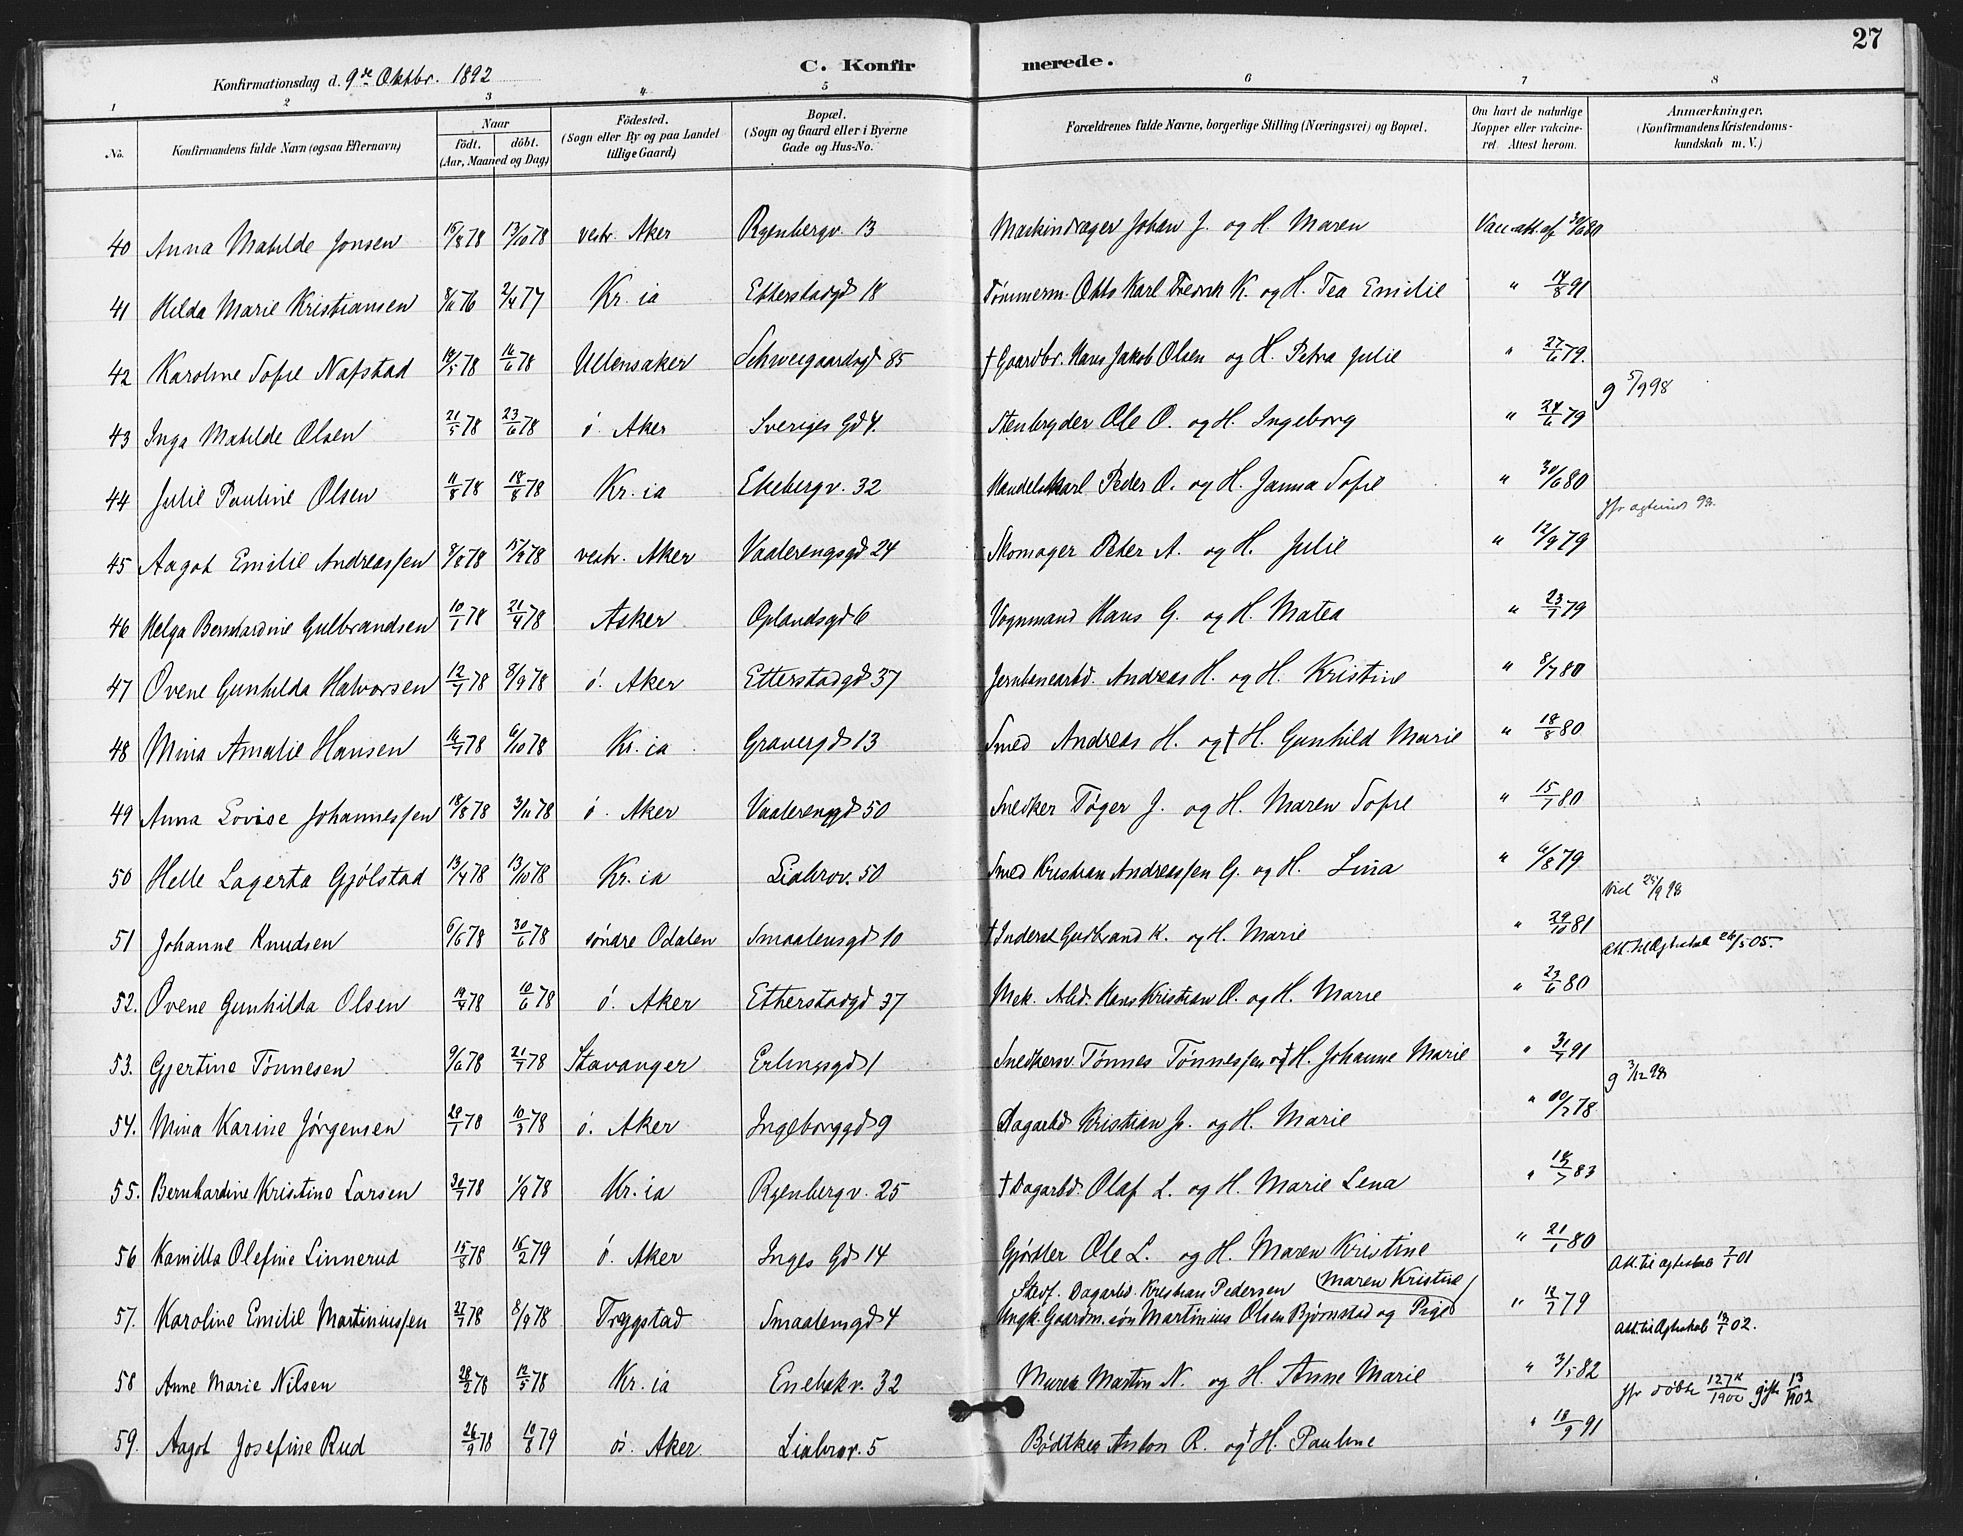 27
Konfirmationsdag d. 9de Oktbr. 1892
C. Konfirmerede.
1 2 3 4 5 6 7 8
No. Konfirmandens fulde Navn (ogsaa Efternavn) Naar født. døbt. (Aar, Maaned og Dag) Fødested. (Sogn eller By og paa Landet tillige Gaard) Bopæl. (Sogn og Gaard eller i Byerne Gade og Hus-No. Forældrenes fulde Navne, borgerlige Stilling (Næringsvei) og Bopæl. Om havt de naturlige Kopper eller vakcineret. Attest herom. Anmærkninger. (Konfirmandens Kristendomskundskab m. V.)
40 Anna Matilde Jonsen 15/8 78 13/10 78 vestr. Aker Ryenbergv. 13 Maskindræger Johan J. og H. Maren Vacc. att. af 30/6 80
41 Hilda Marie Kristiansen 8/11 76 2/4 77 Kr.ia Etterstadgd 18 Tømmerm. Otto Karl Fredrik K. og H. Tea Emilie " 14/8 91
42 Karoline Sofie Nafstad 19/5 78 16/6 78 Ullensaker Schweigaardsgd 85 † Gaardbr. Hans Jakob Olsen og H. Petra Julie " 27/6 79.
g 5/9 98
43 Inga Matilde Olsen 21/5 78 23/6 78 ö. Aker Sveriges Gd 4. Stenbryder Ole O. og H. Ingeborg " 24/6 79
44 Julie Pauline Olsen 11/8 78 18/8 78 Kr.ia Ekebergv. 32 Handelskarl Peder O. og H. Janna Sofie " 30/6 80
45 Aagot Emilie Andreassen 8/8 78 15/9 78 vestr. Aker Vaalerengsgd 24 Skomager Peter A. og H. Julie " 12/9 79
46 Helga Bernhardine Gulbrandsen 10/1 78 21/4 78 Asker Oplandsgd 6 Vognmand Hans G. og H. Matea " 23/7 79
47 Ovene Gunhilda Halvorsen 12/7 78 8/9 78 ö. Aker Etterstadgd 37 Jernbanearbd. Andreas H. og H. Kristine " 8/7 80
48 Mina Amalie Hansen 16/7 78 6/10 78 Kr.ia Gravergd 13 Smed Andreas H. og † H. Gunhild Marie " 18/8 80
49 Anna Lovise Johannessen 18/8 78 3/11 78 ö. Aker Vaalerenggd 50 Snedker Tøger J. og H. Maren Sofie " 15/7 80
50 Helle Lagerta Gjølstad 13/4 78 13/10 78 Kr.ia Liabrov. 50 Smed Kristian Andreassen G. og H. Lina " 6/8 79
viel 25/9 98
51 Johanne Knudsen 6/6 78 30/6 78 søndre Odalen Smaalensgd 10 † Inderst Gudbrand K. og H. Marie " 29/10 81
att. til Ægteskab 26/5 05.
52. Ovene Gunhilda Olsen 19/4 78 10/6 78 ö. Aker Etterstadgd 37 Mek. Arbd. Hans Kristian O. og H. Marie " 23/6 80
53. Gjertine Tønnesen 9/6 78 21/7 78 Stavanger Erlingsgd 1 Snedkersv. Tønnes Tønnessen og † H. Johanne Marie " 31/7 91
g 3/12 98
54. Mina Karine Jørgensen 29/1 78 10/3 78 ö. Aker Ingeborggd 9 Dagarbd Kristian J. og H. Marie " 10/7 78
55. Bernhardine Kristine Larsen 30/7 78 1/9 78 Kr.ia Ryenbergv. 25 † Dagarbd. Olaf L. og H. Marie Lena " 18/7 83
56 Kamilla Olefine Linnerud 15/8 78 16/2 79 ö. Aker Inges Gd 14 Gjørtler Ole L. og H. Maren Kristine " 21/1 80
Att. til Ægteskab 7/1 01
Stedf. Dagarbd. Kristian Pedersen (Maren Kristine)
57. Karoline Emilie Martiniussen 27/7 78 8/9 78 Trygstad Smaalensgd 4 Ungk. Gaardm.søn Martinius Olsen Bjørnstad og Pige " 12/7 79
Att. til Ægteskab 13/1 02.
58 Anne Marie Nilsen 28/2 78 12/5 78 Kr.ia Enebakv. 32 Murer Martin N. og H. Anne Marie " 3/5 82
jfr døbte 127k/1900 gifte 13/1902
59. Aagot Josefine Rud 26/9 78 10/8 79 ö. Aker Liabrov. 5 Bødtker Anton R. og † H. Pauline " 18/9 91